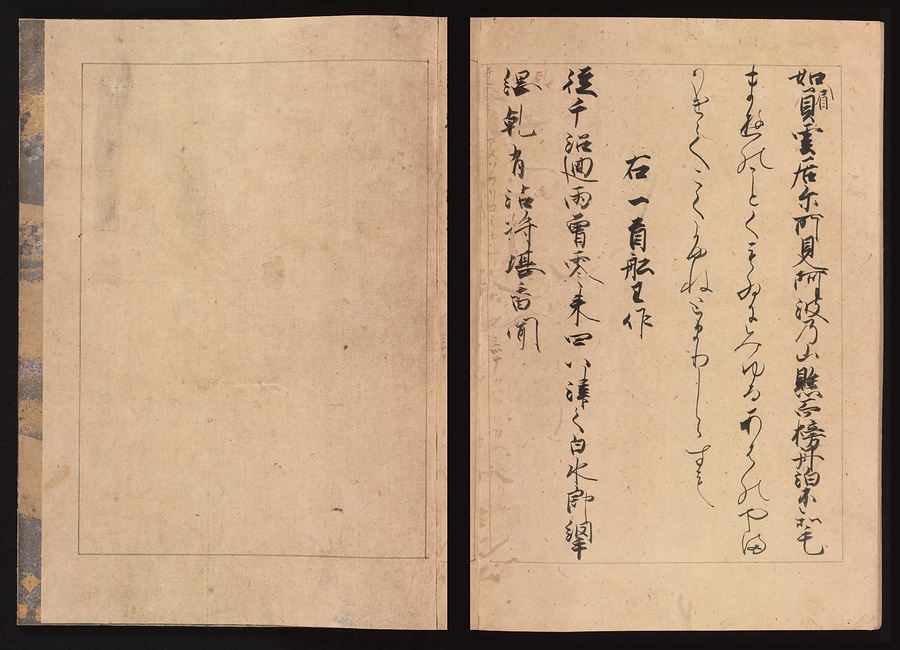 如員眉雲居尓所見阿波乃山懸而榜舟泊不知毛
まゆのことくもゐにみゆるあはのやま
かけてこくふねとまりしらすも
右一首舩王作
従千沼廻雨曽零来四八津之白水郎網手
綱乾有沾将堪香聞